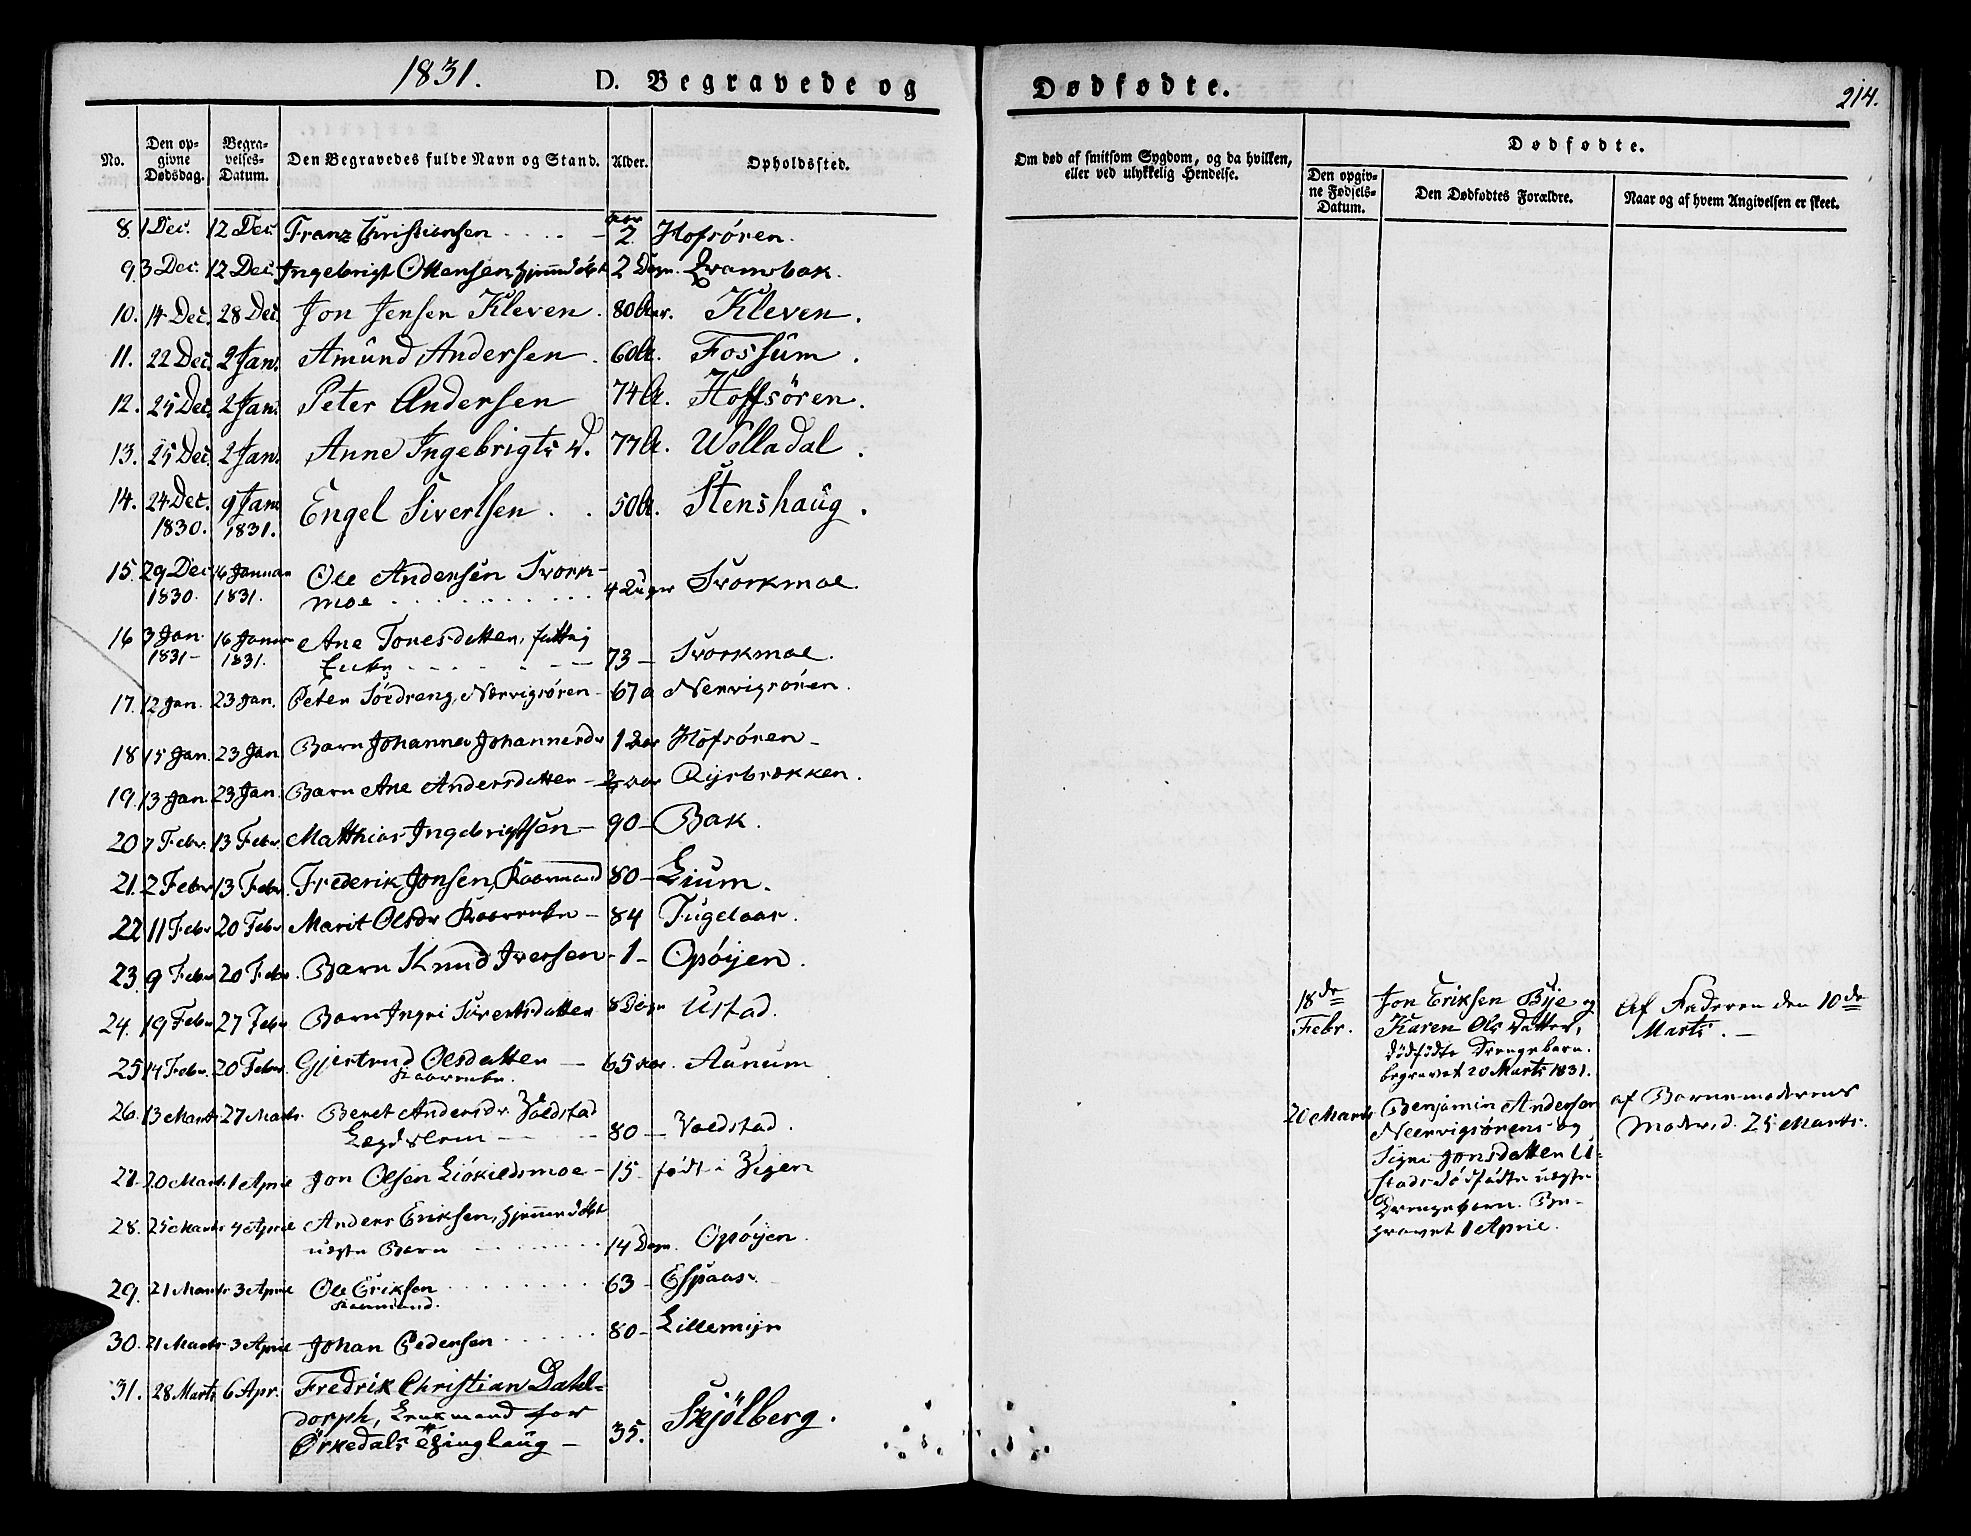 1831.
D. Begravede og
Dødfødte.
214.
No.
Den op-
givne
Dødsdag.
Begra-
velses-
Datum.
Den Begravedes fulde Navn og Stand.
Alder.
Opholdssted.
Om død af smitsom Sygdom, og da hvilken,
eller ved ulykkelig Hendelse.
Dødfødte.
Den opgiv-
ne Fødsels-
Datum.
Den Dødfødtes Forældre.
Naar og af hvem Angivelsen er skeet.
8. 1 Dec. 12 Dec. Franz Christiensen aar 2. Hofsören.
9. 3 Dec. 12 Dec. Ingebrigt Ottensen, hjemmedöbt 2 Dage.
10. 14 Dec. 28 Dec. Jon Jensen Kleven. 80 Aar. Kleven.
11. 22 Dec. 2 Jan. Amund Andersen. 60 A. Fossum.
12. 25 Dec. 2 Jan. Peter Andersen 74 A. Hoffsören.
13. 25 Dec. 2 Jan. Anne Ingebrigts D. 77 A. Wolladal.
14. 24 Dec. 9 Jan. Engel Sivertsen. 50 A. Stenshaug.
1830. 1831.
15. 29 Dec. 16 Januar Ole Andersen Svork-
1830. 1831. moe 4 Uger Svorkmoe.
16 3 Jan. 16 Januar Ane Tonesdatter, fattig
1831 - 1831. Enke 73 - Svorkmoe.
17. 12 Jan. 23 Jan. Peter Nærvigsören - 67 a Nervigsören.
18 15 Jan. 23 Jan. Barn Johanna Johannesdr 1 Aar Hofsören -
19. 13 Jan. 23 Jan. Barn Ane Andersdatter - aar
20 7 Febr. 13 Febr. Matthias Ingebrigtsen - 90 - Bak.
21. 2 Febr 13 Febr. Frederik Jonsen, Kaarmand 80 - Lium.
22 11 Febr 20 Febr Marit Olsdr - 84
23. 9 Febr 20 Febr. Barn Knud Iversen - 1 - Opöyen.
24. 19 Febr 27 Febr Barn Ingri Sivertsdatter 8 Dage Ustad.
25 14 Febr. 20 Febr. Gjertrud Olsdatter - 65 aar. Aunum
26. 13 Marts 27 Marts Beret Andersdr Voldstad
Lægdslem 80 - Voldstad.
27. 20 Marts 1 April Jon Olsen 15. födt i Vigen
28. 25 Marts 4 April Anders Eriksen, hjemmedöbt
uægte Barn 14 Dage. Opöyen.
29. 21 Marts 3 April Ole Eriksen 63 - Espaas.
Kaarmand.
30. 21 Marts 3 April Johan Pedersen 80 - Lillemyr
31. 28 Marts 6 Apr. Fredrik Christian Dahl-
dorph, Lensmand for
Örkedals Thinglaug - 35. Skjölberg.
18de
Febr.
Jon Eriksen Bye og
Karen Ols Datter,
dödfödte Drengebarn.
begravet 20 Marts 1831.
Af Faderen den 10de
Marts. -
20 Marts
Benjamin Andersen
Neervigsörens og
Signe Jonsdatter U-
stads dödfödte uægte
Drengebarn. Be-
gravet 1 April.
af Barnemoderens
Moder d. 25 Marts.